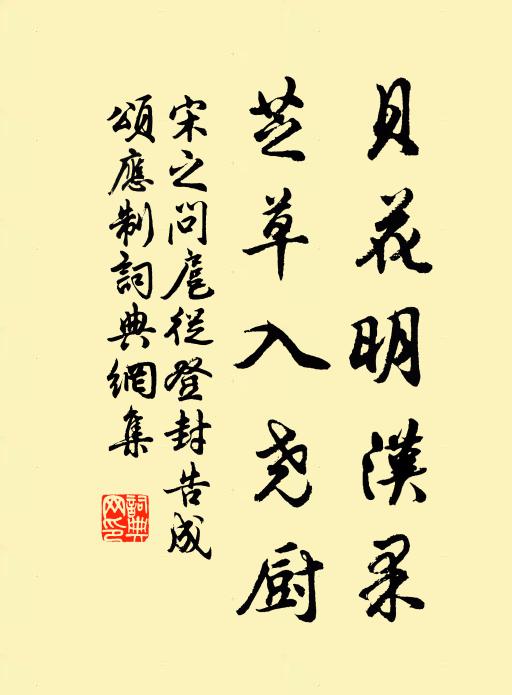 貝花明漢果
芝草入尧厨
宋之问扈從登封告成
頌應制詞典網集
詞典
网印